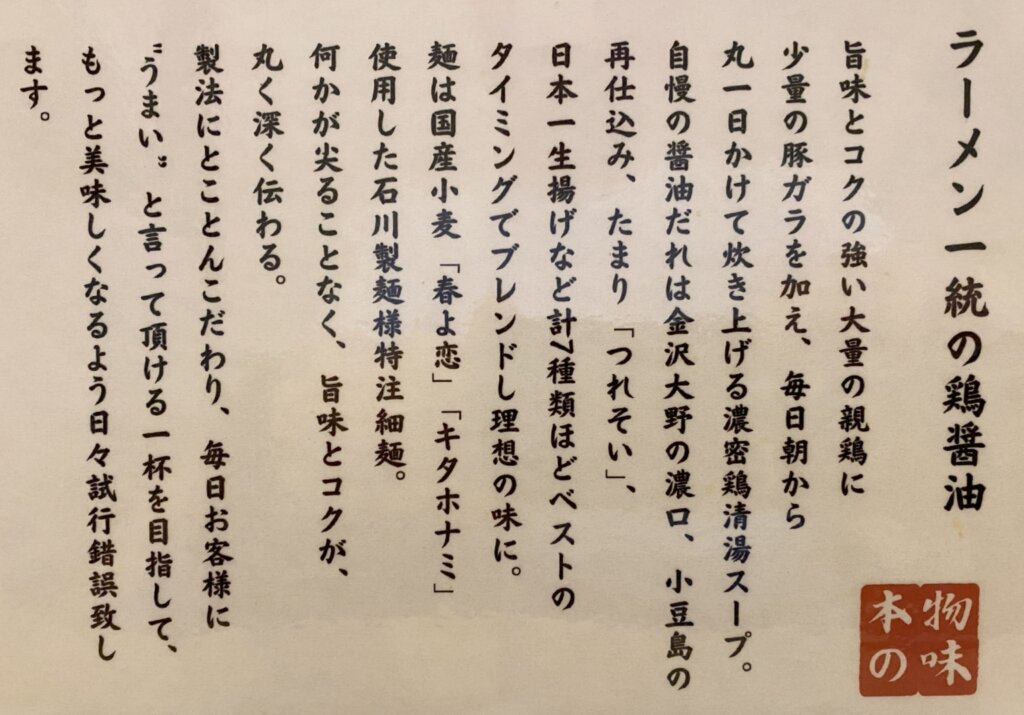 ラーメン一統の鶏醤油
旨味とコクの強い大量の親鶏に
少量の豚ガラを加え、毎日朝から
丸一日かけて炊き上げる濃密鶏清湯スープ。
自慢の醤油だれは金沢大野の濃口、小豆島の
再仕込み、たまり「つれそい」、
日本一生揚げなど計7種類ほどベストの
タイミングでブレンドし理想の味に。
麺は国産小麦「春よ恋」「キタホナミ」
使用した石川製麺様特注細麺。
何かが尖ることなく、旨味とコクが、
丸く深く伝わる。
製法にとことんこだわり、毎日お客様に
〝うまい〟と言って頂ける一杯を目指して、
もっと美味しくなるよう日々試行錯誤致し
ます。
物味
本の